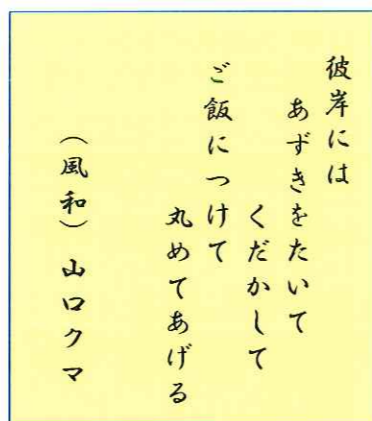 彼岸には
あずきをたいて
くだかして
ご飯につけて
丸めてあげる
（風和）山口クマ